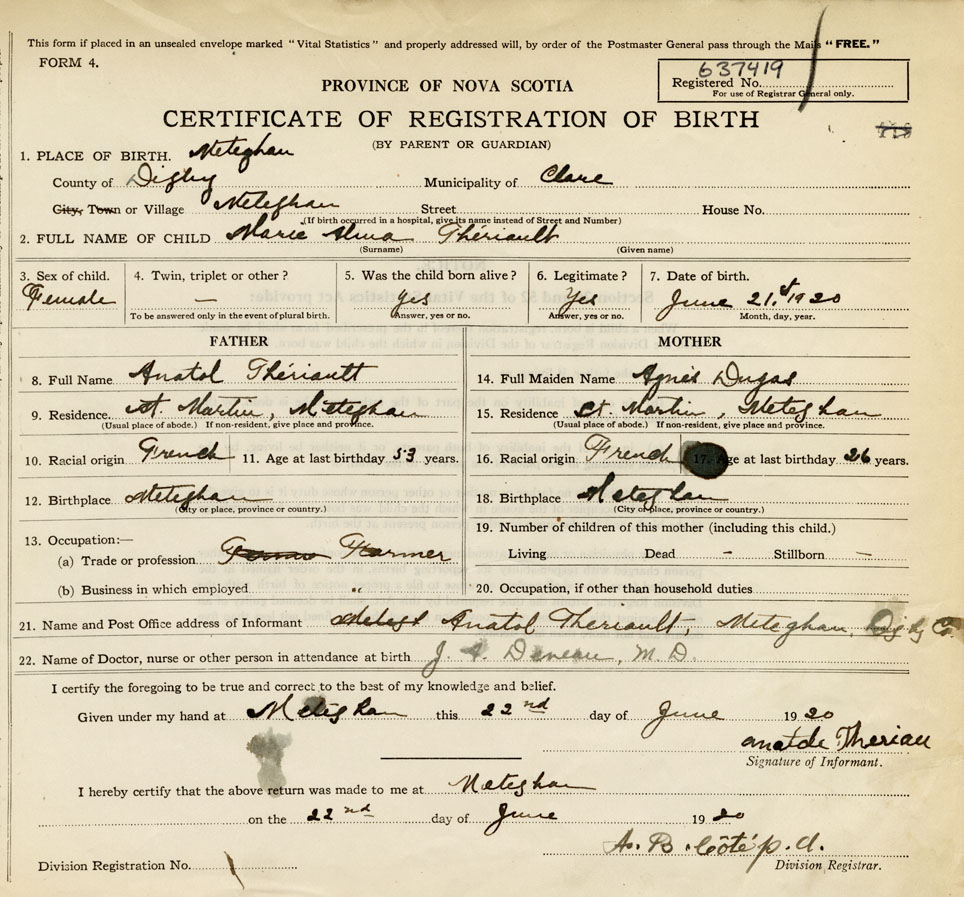 This form if placed in an unsealed envelope marked "Vital Statistics" and properly addressed will, by order of the Postmaster General pass through the Mails "FREE."
FORM 4.
637419
Registered No.
For use of Registrar General only.
PROVINCE OF NOVA SCOTIA
CERTIFICATE OF REGISTRATION OF BIRTH
(BY PARENT OR GUARDIAN)
1. PLACE OF BIRTH. Meteghan
County of Digby Municipality of Clare
City, Town or Village Meteghan Street House No.
(If birth occurred in a hospital, give its name instead of Street and Number)
2. FULL NAME OF CHILD Marie Alma Thériault
(Surname) (Given name)
3. Sex of child. 4. Twin, triplet or other? 5. Was the child born alive? 6. Legitimate? 7. Date of birth.
Female — Yes Yes June 21st 1920
To be answered only in the event of plural birth. Answer, yes or no. Answer, yes or no. Month, day, year.
FATHER
8. Full Name Anatol Thériault
9. Residence St. Martin, Meteghan
(Usual place of abode.) If non-resident, give place and province.
10. Racial origin French 11. Age at last birthday 53 years.
12. Birthplace Meteghan
(City or place, province or country.)
13. Occupation:—
(a) Trade or profession Farmer
(b) Business in which employed "
MOTHER
14. Full Maiden Name Agnès Dugas
15. Residence St. Martin, Meteghan
(Usual place of abode.) If non-resident, give place and province.
16. Racial origin French 17. Age at last birthday 26 years.
18. Birthplace Meteghan
(City or place, province or country.)
19. Number of children of this mother (including this child.)
Living Dead – Stillborn —
20. Occupation, if other than household duties
21. Name and Post Office address of Informant Anatol Theriault, Meteghan, Digby Co.
22. Name of Doctor, nurse or other person in attendance at birth J. Deveau, M.D.
I certify the foregoing to be true and correct to the best of my knowledge and belief.
Given under my hand at Meteghan this 22nd day of June 1920
anatole Theriau
Signature of Informant.
I hereby certify that the above return was made to me at Meteghan
on the 22nd day of June 1920
A. B. Côté p.d.
Division Registrar.
Division Registration No.